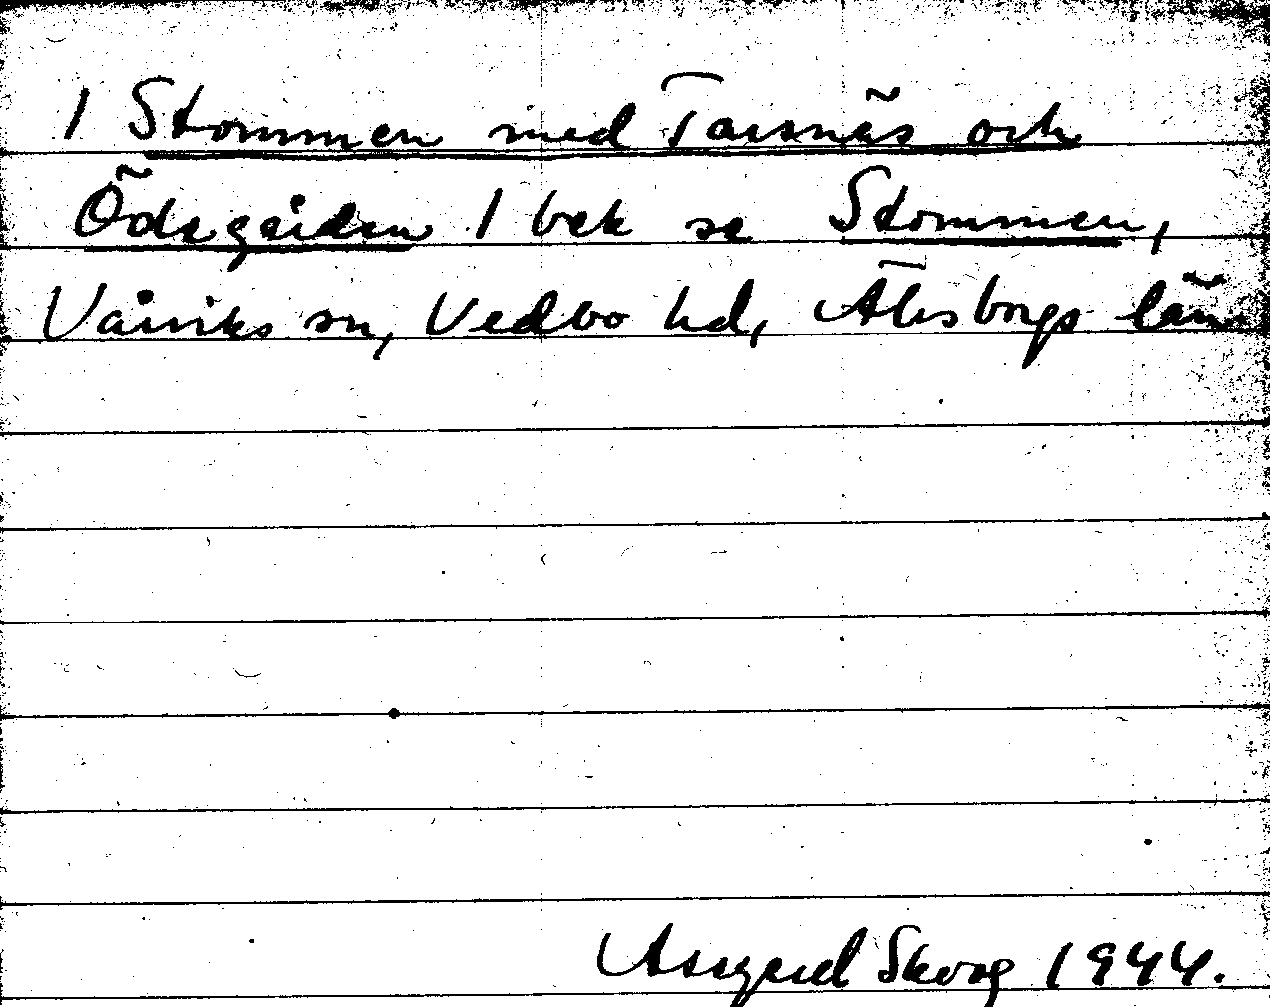 1 Stommen med Tarsnäs och
Ödegården 1 bek se Stommen,
Vårviks sn, Vedbo hd, Älvsborgs län
Assgerd Skog 1944.